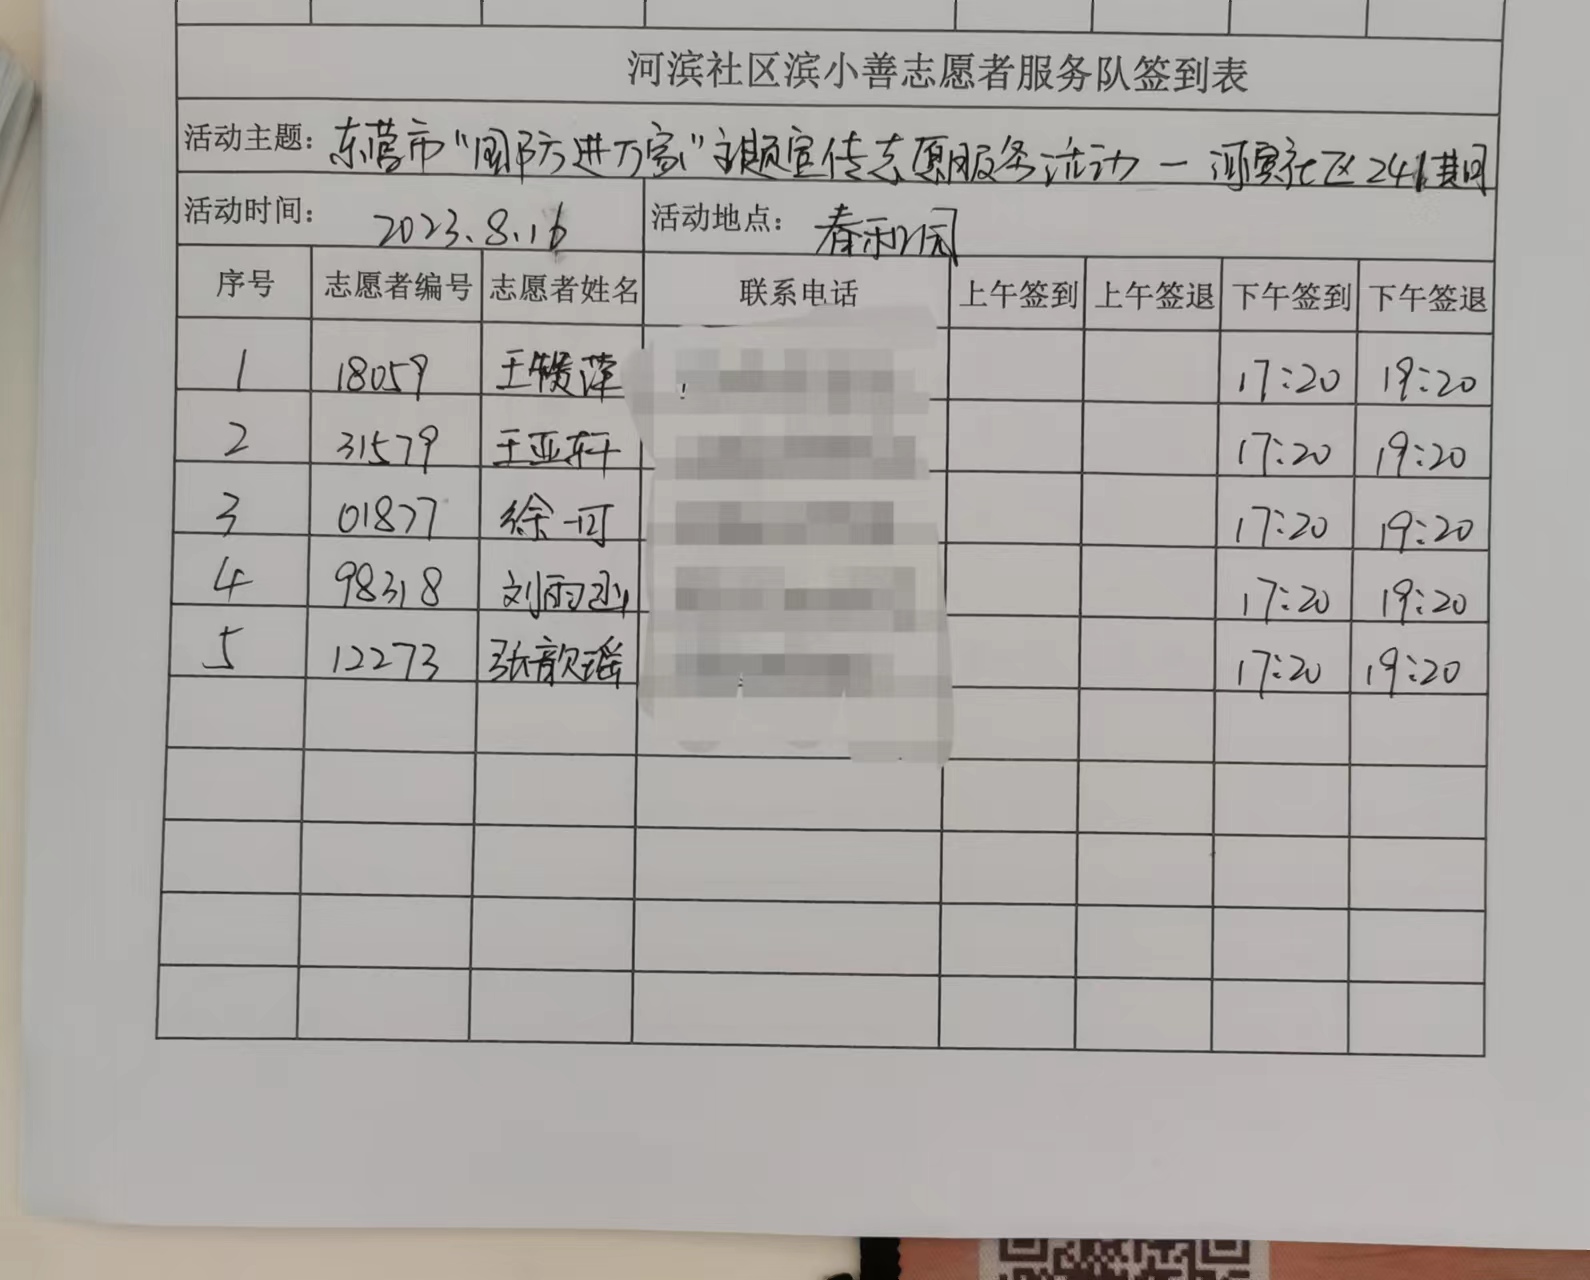 河滨社区滨小善志愿者服务队签到表
活动主题：东营市“国防进万家”主题宣传志愿服务活动一河滨社区241期
活动时间： 2023.8.16 活动地点： 春和园
序号 志愿者编号 志愿者姓名 联系电话 上午签到 上午签退 下午签到 下午签退
1 18059 王媛萍 17:20 19:20
2 31579 王亚轩 17:20 19:20
3 01877 徐一可 17:20 19:20
4 98318 刘雨函 17:20 19:20
5 12273 张歆瑶 17:20 19:20